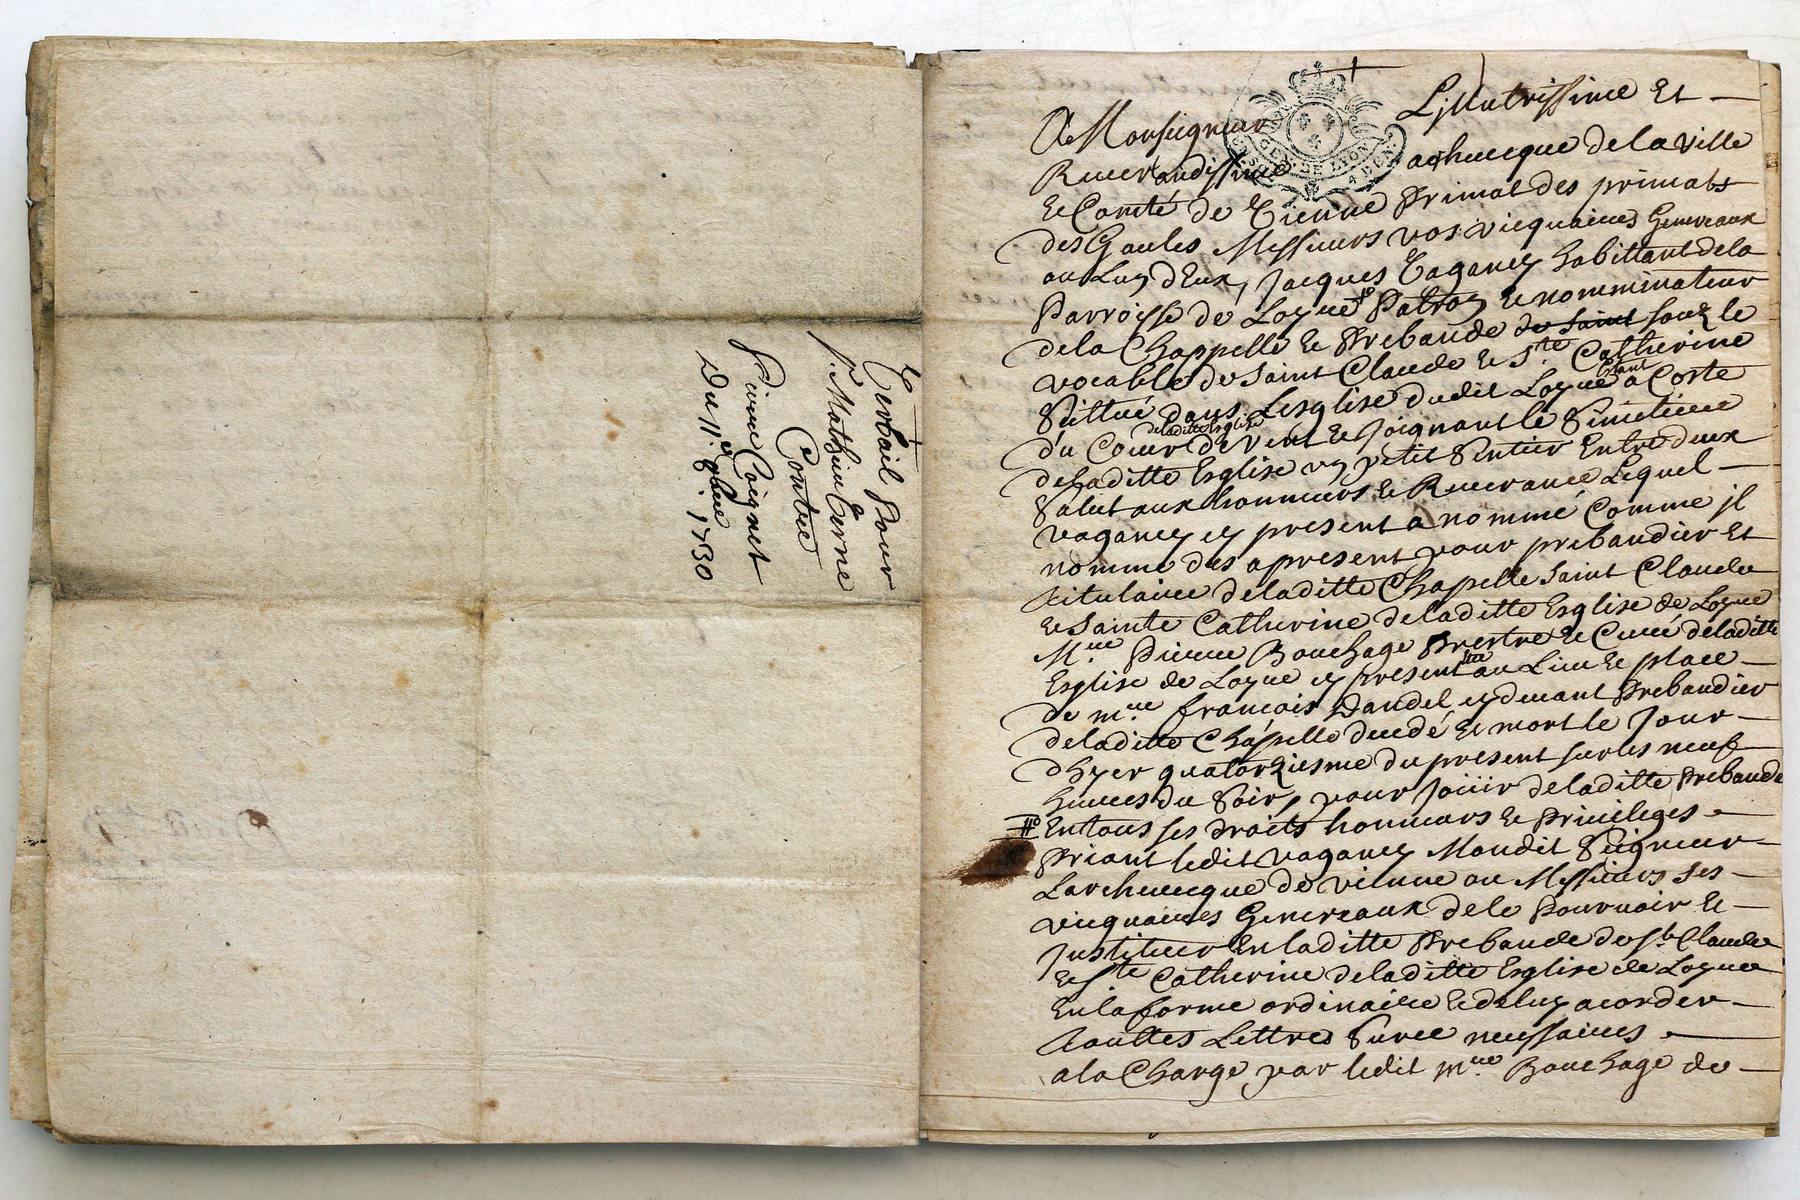 Verbail pour
Sr. Mathieu Verne
Contre
Pierre Coignet
Du 11e 9bre 1730
A Monseigneur Lillustrissime Et
Reverandissime archevecque de la Ville
et Comté de Vienne Primat des primats
des Gaules Messieurs vos vicquaires Generaux
ou Luy d'Eux, Jacques Vaganey habittant de la
Parroisse de Loyue Patron et nomminateur
de la Chappelle et Prebande de saint souz le
vocable de Saint Claude et Ste Catherine
Scittué dans Lesglise dudit Loyue estant a Coste
du Coeur de laditte Esglise de vent et Joignant le Simetiere
de laditte Esglise un petit Sentier Entre deux
Salut aux honneurs et Reverance Lequel
vaganey ey present a nommé Comme jl
nomme des apresent pour prebandier Et
titulaire de laditte Chapelle Saint Claude
et Sainte Catherine de laditte Esglise de Loyue
Mre Pierre Bouchage Prestre et Curé de laditte
Esglise de Loyue ey present au Lieu et place
de mre francois Dandel ey devant Prebandier
de laditte Chapelle decedé et mort le Jour
dhyer quatorziesme du present sur les neuf
heures du Soir, pour Joüir de laditte Prebande
En tous ses droits honneurs et Privileges
Priant ledit vaganey Mondit Seigneur
Larchevecque de vienne ou Messieurs ses
vicquaires Generaux de le Pourvoir et
Justituer En laditte Prebande de St Claude
et Ste Catherine de laditte Esglise de Loyue
En la forme ordinaire et de luy acorder
touttes Lettres Surce necessaires
a la Charge par ledit mre Bouchage de